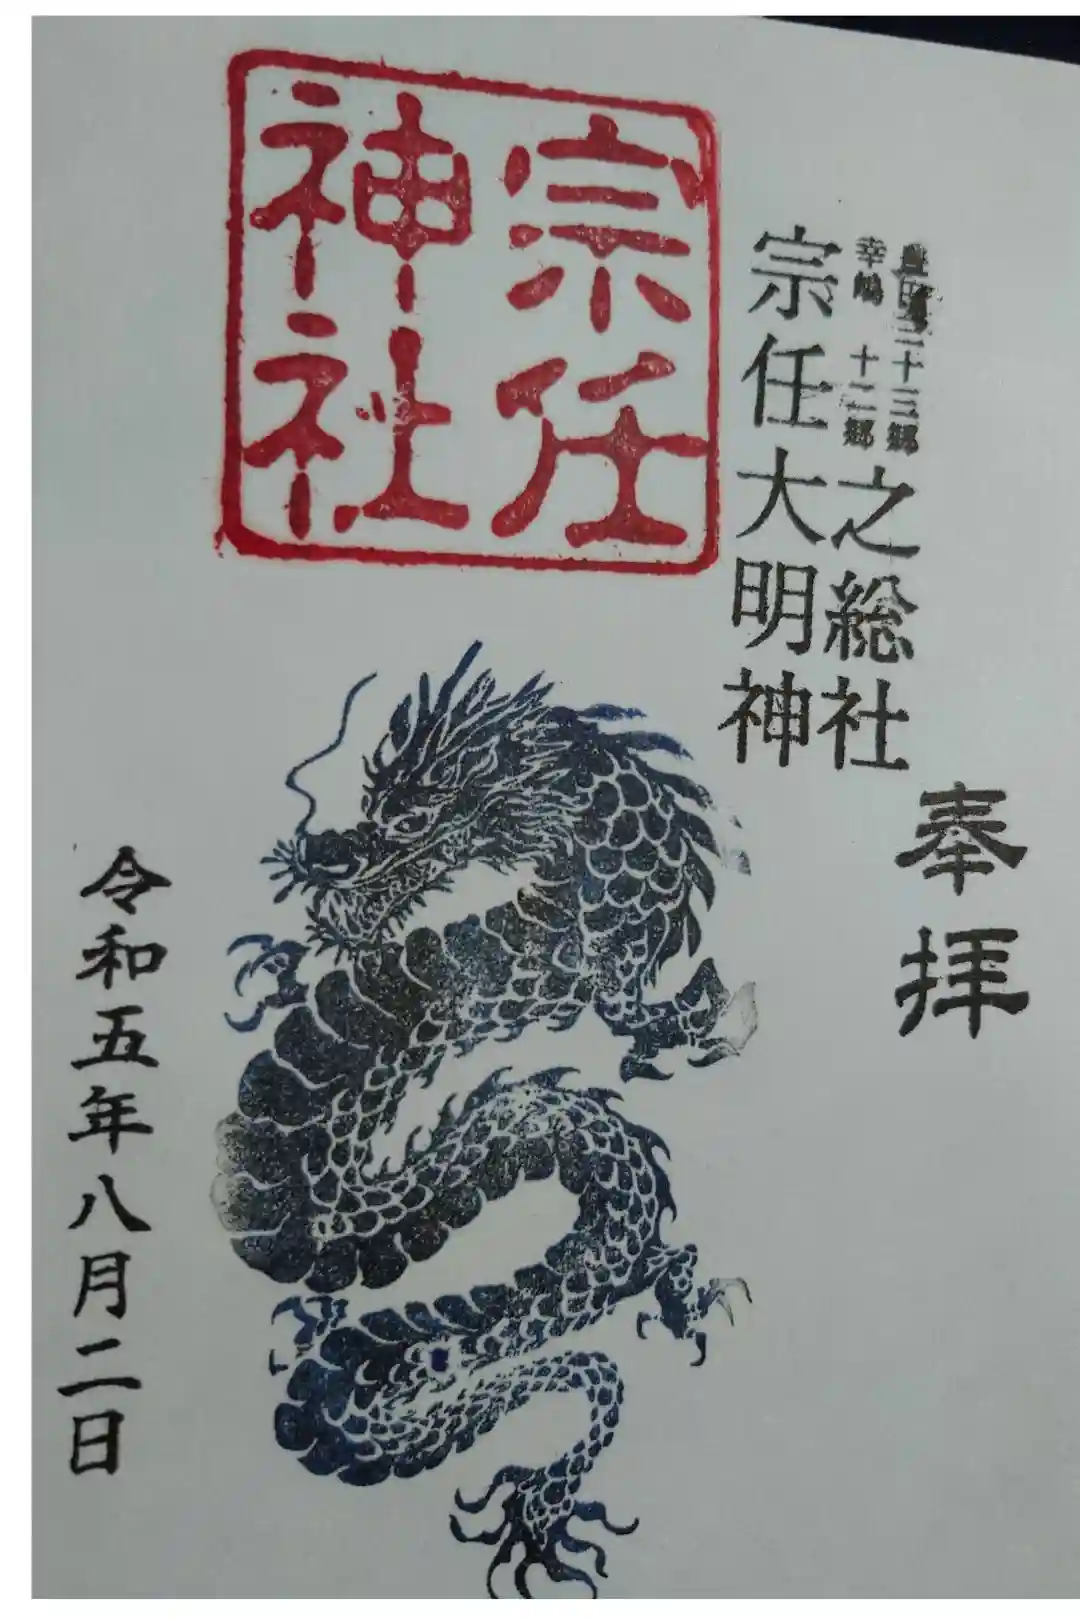 奉拝
幸嶋 十二郷
二十三郷
之総社
宗任大明神
宗任
神社
令和五年八月二日